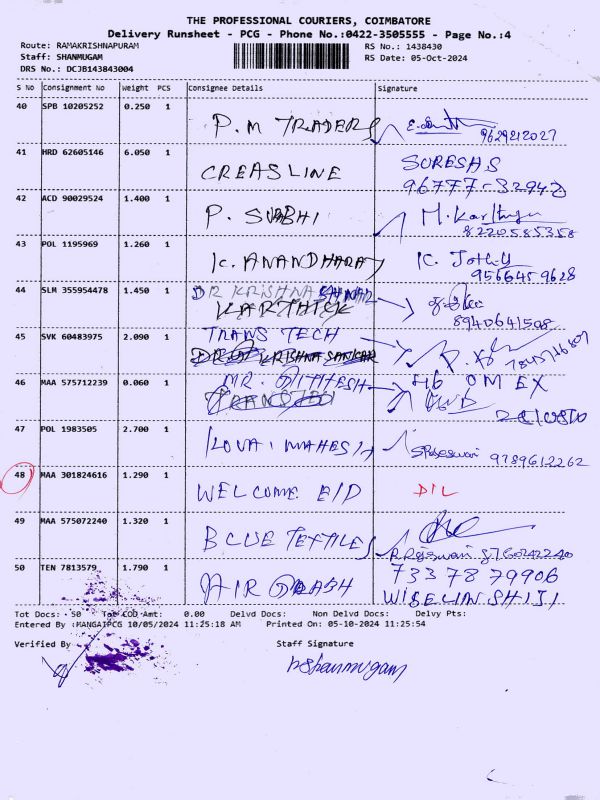 THE PROFESSIONAL COURIERS, COIMBATORE
Delivery Runsheet - PCG - Phone No.:0422-3505555 - Page No.:4
Route: RAMAKRISHNAPURAM
RS No.: 1438430
Staff: SHANMUGAM
RS Date: 05-Oct-2024
DRS No.: DCJB143843004
S No Consignment No Weight PCS Consignee Details Signature
40 SPB 10205252 0.250 1
P.M TRADERS
9629212027
41 HRD 62605146 6.050 1
CREASLINE SURESH.S
96777-32942
42 ACD 90029524 1.400 1
P. SUBHI M. Karthiga
8220585358
43 POL 1195969 1.260 1
K. ANANDHARAJ K. Jothy
9566459628
44 SLM 355954478 1.450 1
DR KRISHNA SANKAR
KARTHICK
8940641508
45 SVK 60483975 2.090 1
TRANS TECH
DR KRISHNA SANKAR
46 MAA 575712239 0.060 1
MR. JITHESH
47 POL 1983505 2.700 1
KOVAI MAHESH 9789612262
48 MAA 301824616 1.290 1
WELCOME E/D D/L
49 MAA 575072240 1.320 1
BLUE TEXTILES
R.Rajeswari 8760242240
50 TEN 7813579 1.790 1
7337879906
AIR WISELIN SHIJI
Tot Docs: 50 Tot COD Amt: 0.00 Delvd Docs: Non Delvd Docs: Delvy Pts:
Entered By :MANGAIPCG 10/05/2024 11:25:18 AM Printed On: 05-10-2024 11:25:54
Verified By Staff Signature
h.Shanmugam